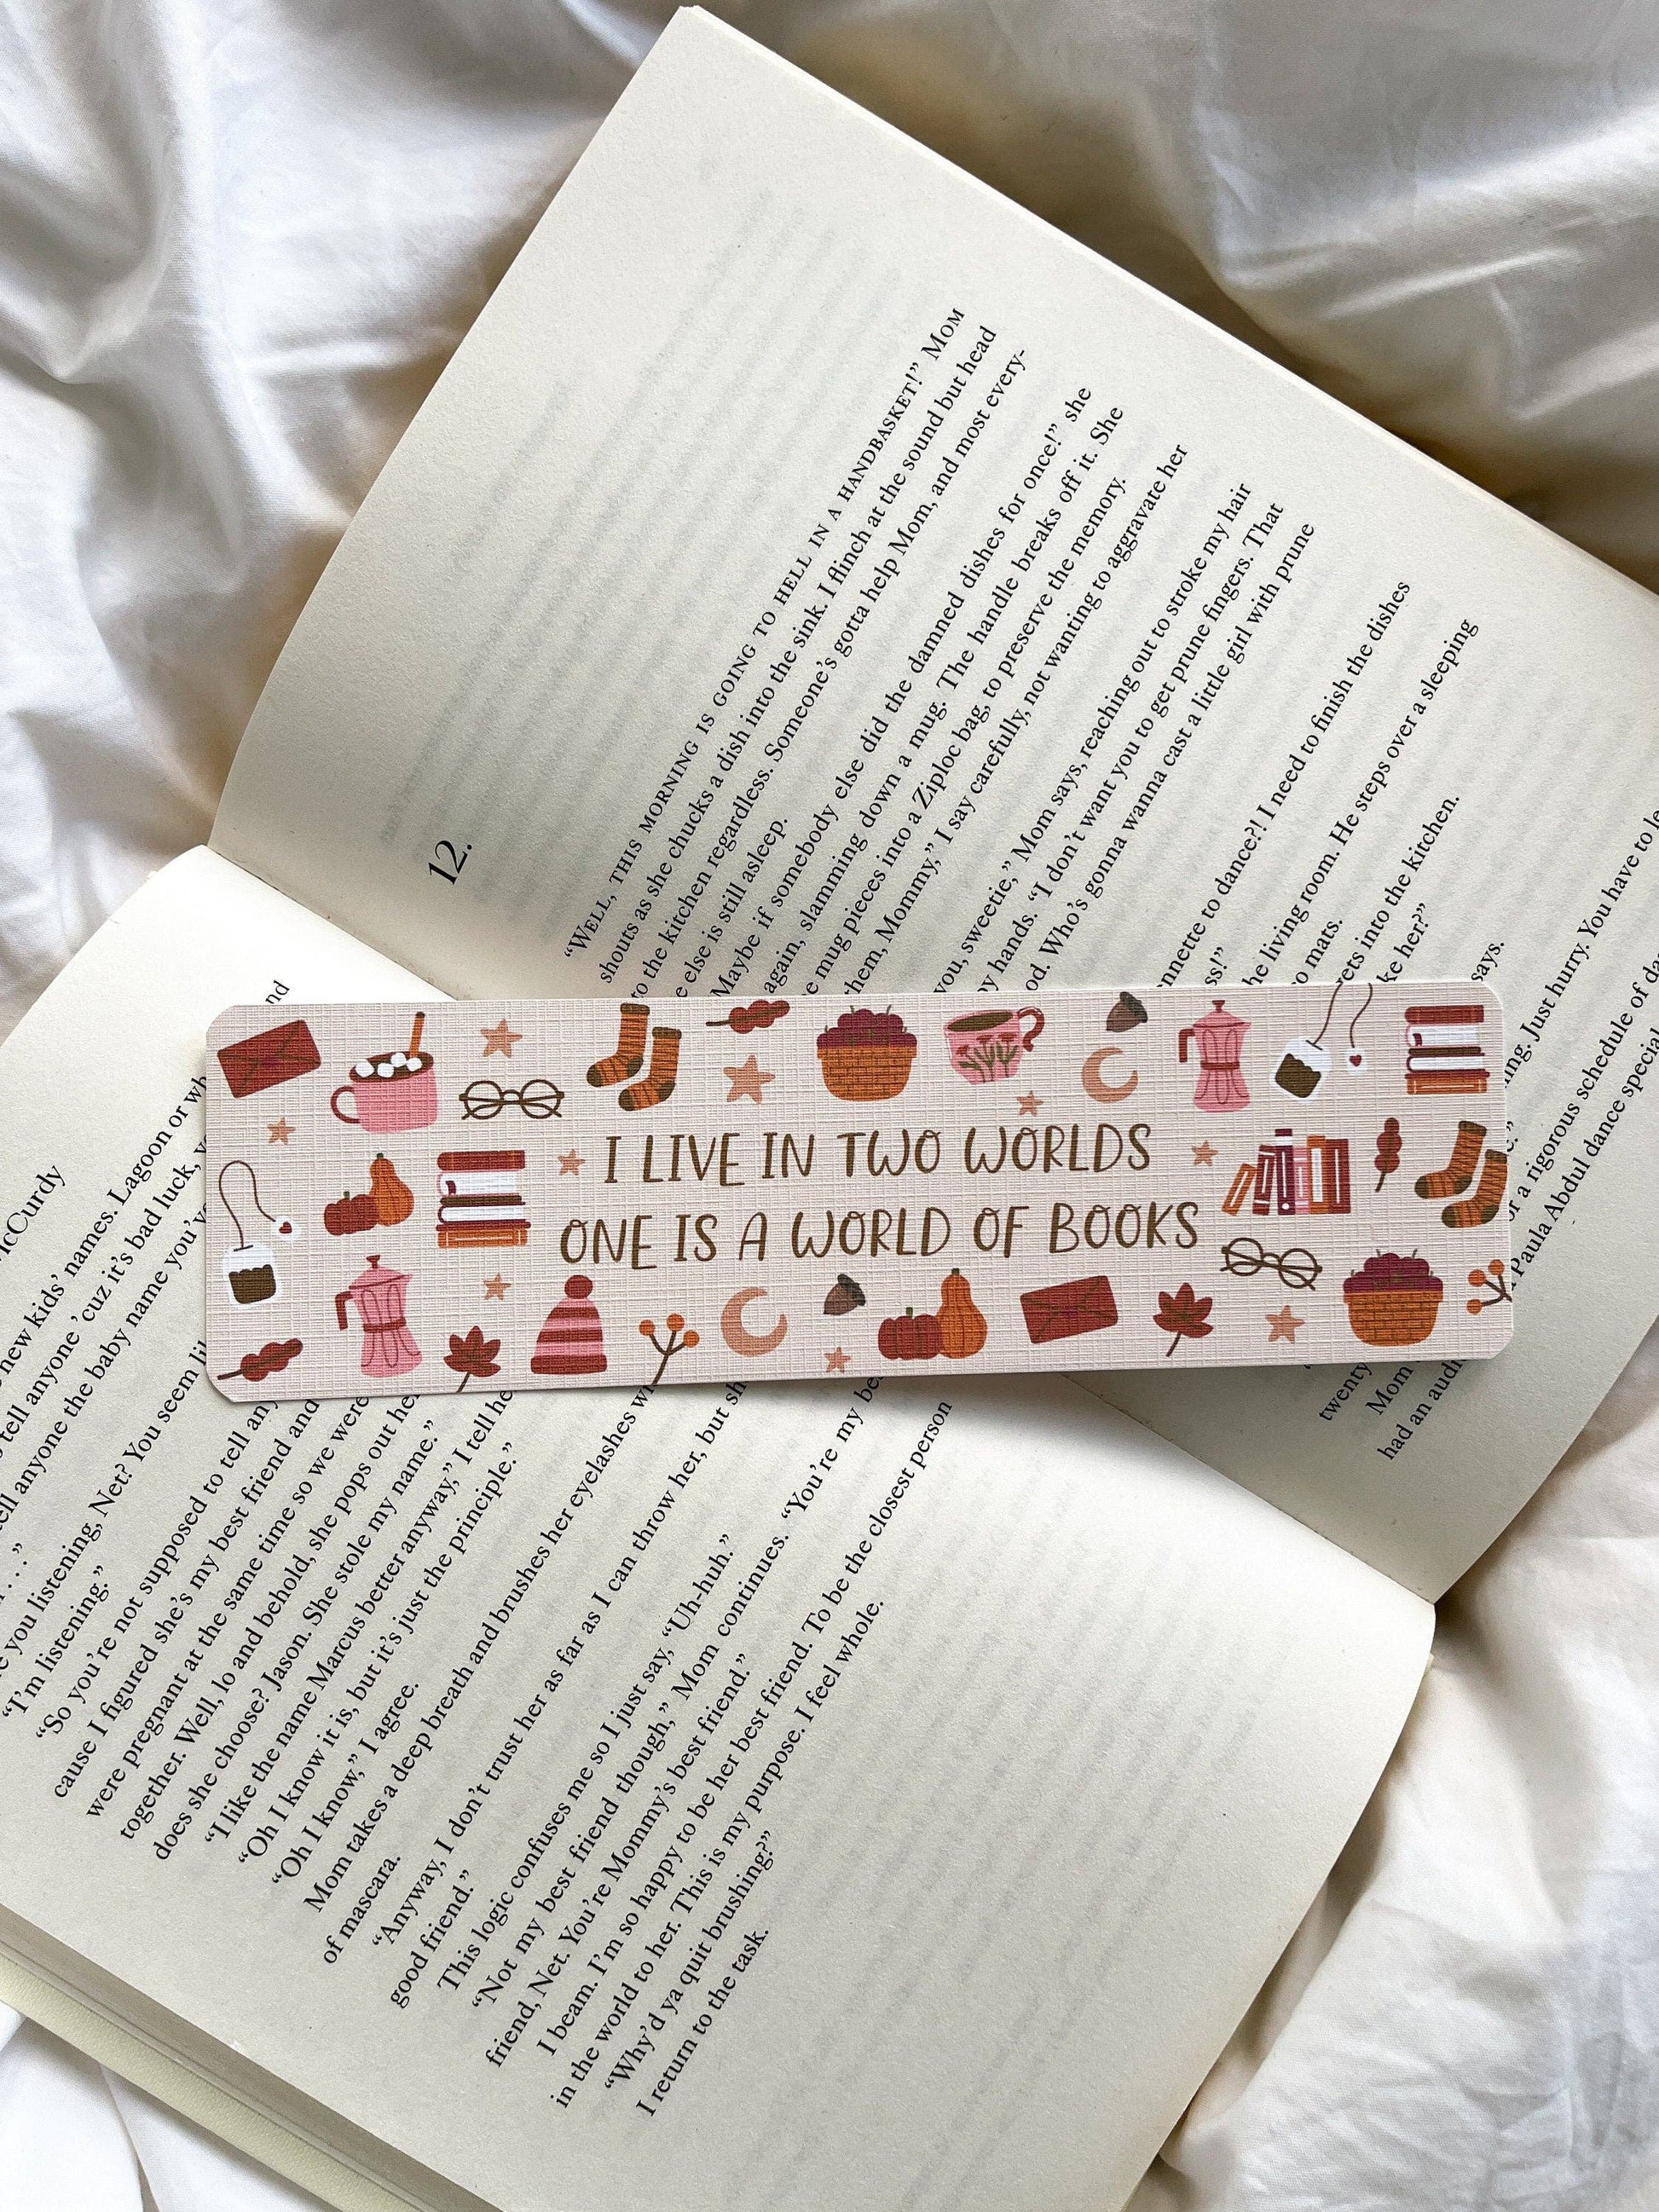 McCurdy
nd
new kids' names. Lagoon or wh
tell anyone 'cuz it's bad luck,
tell anyone the baby name you've
you listening, Net? You seem li
"I'm listening."
"So you're not supposed to tell any
cause I figured she's my best friend and
were pregnant at the same time so we were
together. Well, lo and behold, she pops out he
does she choose? Jason. She stole my name."
"I like the name Marcus better anyway," I tell he
"Oh I know it is, but it's just the principle."
"Oh I know," I agree.
Mom takes a deep breath and brushes her eyelashes wi
of mascara.
"Anyway, I don't trust her as far as I can throw her, but sh
good friend."
This logic confuses me so I just say, "Uh-huh."
"Not my best friend though," Mom continues. "You're my be
friend, Net. You're Mommy's best friend."
I beam. I'm so happy to be her best friend. To be the closest person
in the world to her. This is my purpose. I feel whole.
"Why'd ya quit brushing?"
I return to the task.
I LIVE IN TWO WORLDS
ONE IS A WORLD OF BOOKS
12.
"WELL, THIS MORNING IS GOING TO HELL IN A HANDBASKET!" MOM
shouts as she chucks a dish into the sink. I flinch at the sound but head
to the kitchen regardless. Someone's gotta help Mom, and most every-
e else is still asleep.
Maybe if somebody else did the damned dishes for once!" she
again, slamming down a mug. The handle breaks off it. She
e mug pieces into a Ziploc bag, to preserve the memory.
them, Mommy," I say carefully, not wanting to aggravate her
you, sweetie," Mom says, reaching out to stroke my hair
py hands. "I don't want you to get prune fingers. That
od. Who's gonna wanna cast a little girl with prune
nnette to dance?! I need to finish the dishes
ss!"
he living room. He steps over a sleeping
o mats.
rets into the kitchen.
ke her?"
says.
ning. Just hurry. You have to le
or a rigorous schedule of da
Paula Abdul dance special
twenty
Mom
had an audi